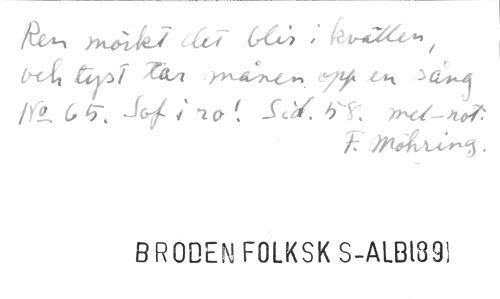 Ren mörkt det blir i kvällen,
och tyst tar månen opp en sång
No 65. Sof i ro! Sid. 58. mel-not:
F. Möhring.
BRODEN FOLKSK S-ALB(89)